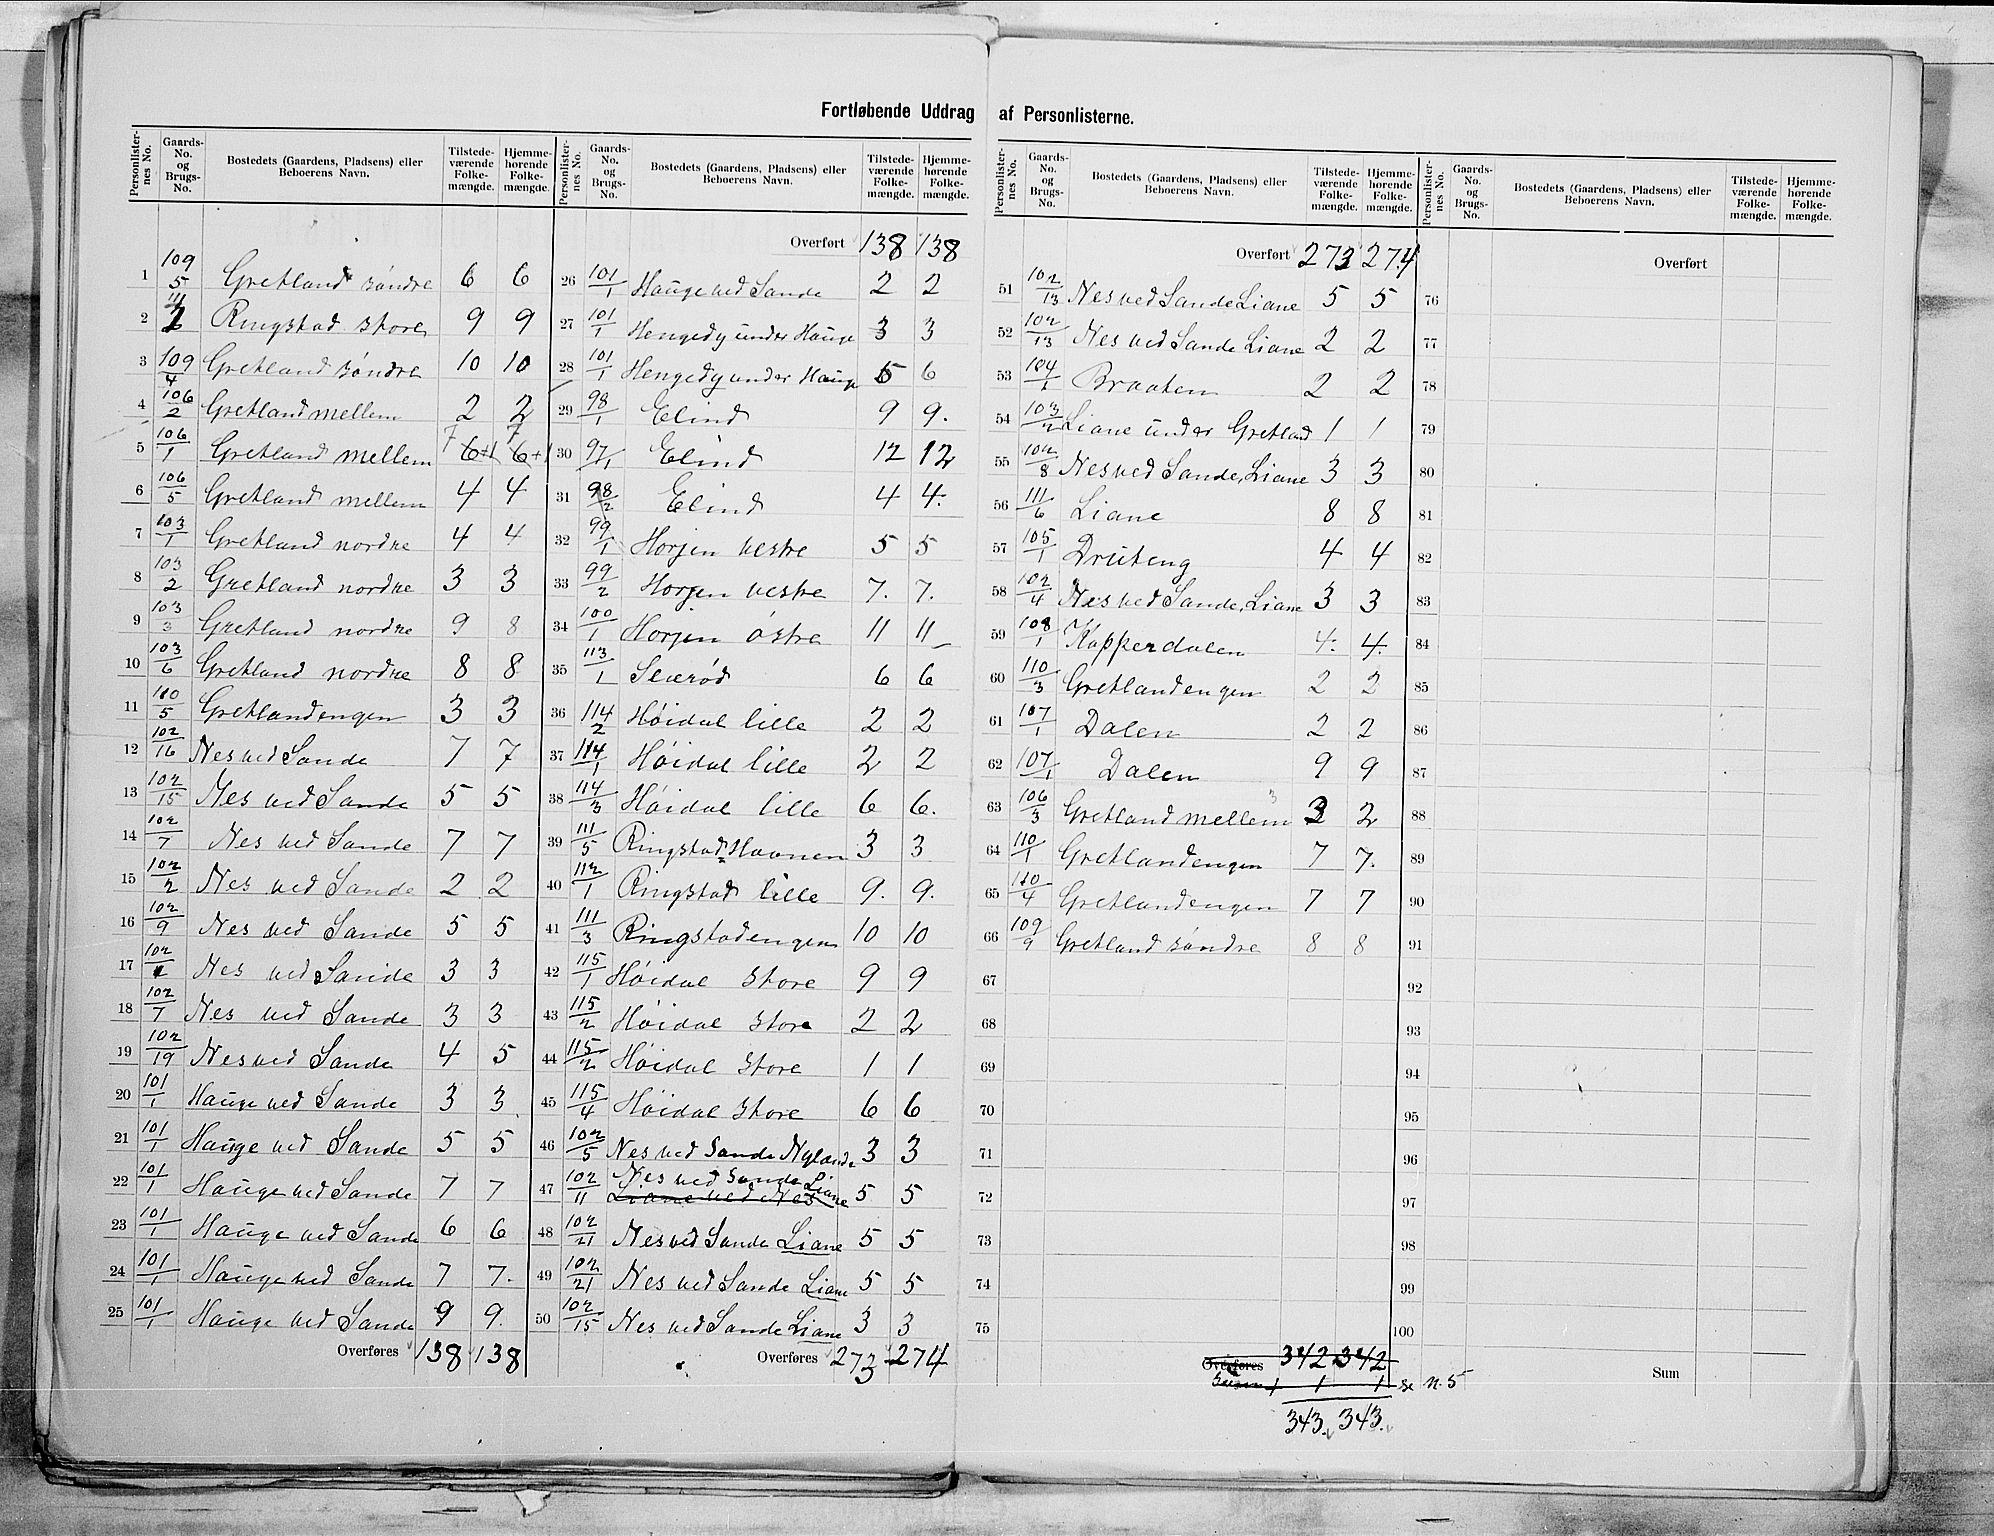 Fortløbende Uddrag af Personlisterne.
Personlister-nes No. Gaards-No. og Brugs-No. Bostedets (Gaardens, Pladsens) eller Beboerens Navn. Tilstede-værende Folke-mængde. Hjemme-hørende Folke-mængde.
1 109/5 Gretland søndre 6 6
2 Ringstad store 9 9
3 109/4 Gretland søndre 10 10
4 106/2 Gretland mellem 2 2
5 106/1 Gretland mellem 7 6+1 7 6+1
6 106/5 Gretland mellem 4 4
7 103/1 Gretland nordre 4 4
8 103/2 Gretland nordre 3 3
9 103/3 Gretland nordre 9 8
10 103/6 Gretland nordre 8 8
11 110/5 Gretlandengen 3 3
12 102/16 Nes ved Sande 7 7
13 102/15 Nes ved Sande 5 5
14 102/7 Nes ved Sande 7 7
15 102/2 Nes ved Sande 2 2
16 102/9 Nes ved Sande 5 5
17 102/ Nes ved Sande 3 3
18 102/7 Nes ved Sande 3 3
19 102/19 Nes ved Sande 4 5
20 101/1 Hauge ved Sande 3 3
21 101/1 Hauge ved Sande 5 5
22 101/1 Hauge ved Sande 7 7
23 101/1 Hauge ved Sande 6 6
24 101/1 Hauge ved Sande 7 7.
25 101/1 Hauge ved Sande 9 9.
Overføres 138 138
Personlister-nes No. Gaards-No. og Brugs-No. Bostedets (Gaardens, Pladsens) eller Beboerens Navn. Tilstede-værende Folke-mængde. Hjemme-hørende Folke-mængde.
Overført 138 138
26 101/1 Hauge ved Sande 2 2
27 101/1 Hengedy under Hauge 3 3
28 101/1 Hengedy under Hauge 6 6
29 98/1 Elind 9 9.
30 97/1 Elind 12 12
31 98/2 Elind 4 4.
32 99/1 Horjen vestre 5 5
33 99/2 Horjen vestre 7. 7.
34 100/1 Horjen østre 11 11
35 113/1 Skerød 6 6
36 114/2 Høidal lille 2 2
37 114/1 Høidal lille 2 2
38 114/3 Høidal lille 6 6.
39 111/5 Ringstad=Havnen 3 3
40 112/1 Ringstad lille 9. 9.
41 111/3 Ringstadengen 10 10
42 115/1 Høidal store 9 9
43 115/2 Høidal store 2 2
44 115/2 Høidal store 1 1
45 115/4 Høidal store 6 6
46 102/5 Nes ved Sande Nylande 3 3
47 102/11 Nes ved Sande Liane
Liane ved Nes 5 5
48 102/21 Nes ved Sande Liane 5 5
49 102/21 Nes ved Sande Liane 5 5
50 102/15 Nes ved Sande Liane 3 3
Overføres 273 274
Personlister-nes No. Gaards-No. og Brugs-No. Bostedets (Gaardens, Pladsens) eller Beboerens Navn. Tilstede-værende Folke-mængde. Hjemme-hørende Folke-mængde.
Overført 273 274
51 102/13 Nes ved Sande Liane 5 5
52 102/13 Nes ved Sande Liane 2 2
53 104/1 Braaten 2 2
54 103/2 Liane under Gretland 1 1
55 102/8 Nes ved Sande, Liane 3 3
56 111/6 Liane 8 8
57 105/1 Druteng 4 4
58 102/4 Nes ved Sande, Liane 3 3
59 108/1 Kopperdalen 4. 4.
60 110/3 Gretlandengen 2 2
61 107/1 Dalen 2 2
62 107/1 Dalen 9 9
63 106/3 Gretland mellem 2 2
64 110/1 Gretlandengen 7 7.
65 110/4 Gretlandengen 7 7
66 109/9 Gretland søndre 8 8
67
68
69
70
71
72
73
74
75
Overføres 342 342
1 1 se n. 5
343. 343.
Personlister-nes No. Gaards-No. og Brugs-No. Bostedets (Gaardens, Pladsens) eller Beboerens Navn. Tilstede-værende Folke-mængde. Hjemme-hørende Folke-mængde.
Overført
76
77
78
79
80
81
82
83
84
85
86
87
88
89
90
91
92
93
94
95
96
97
98
99
100
Sum